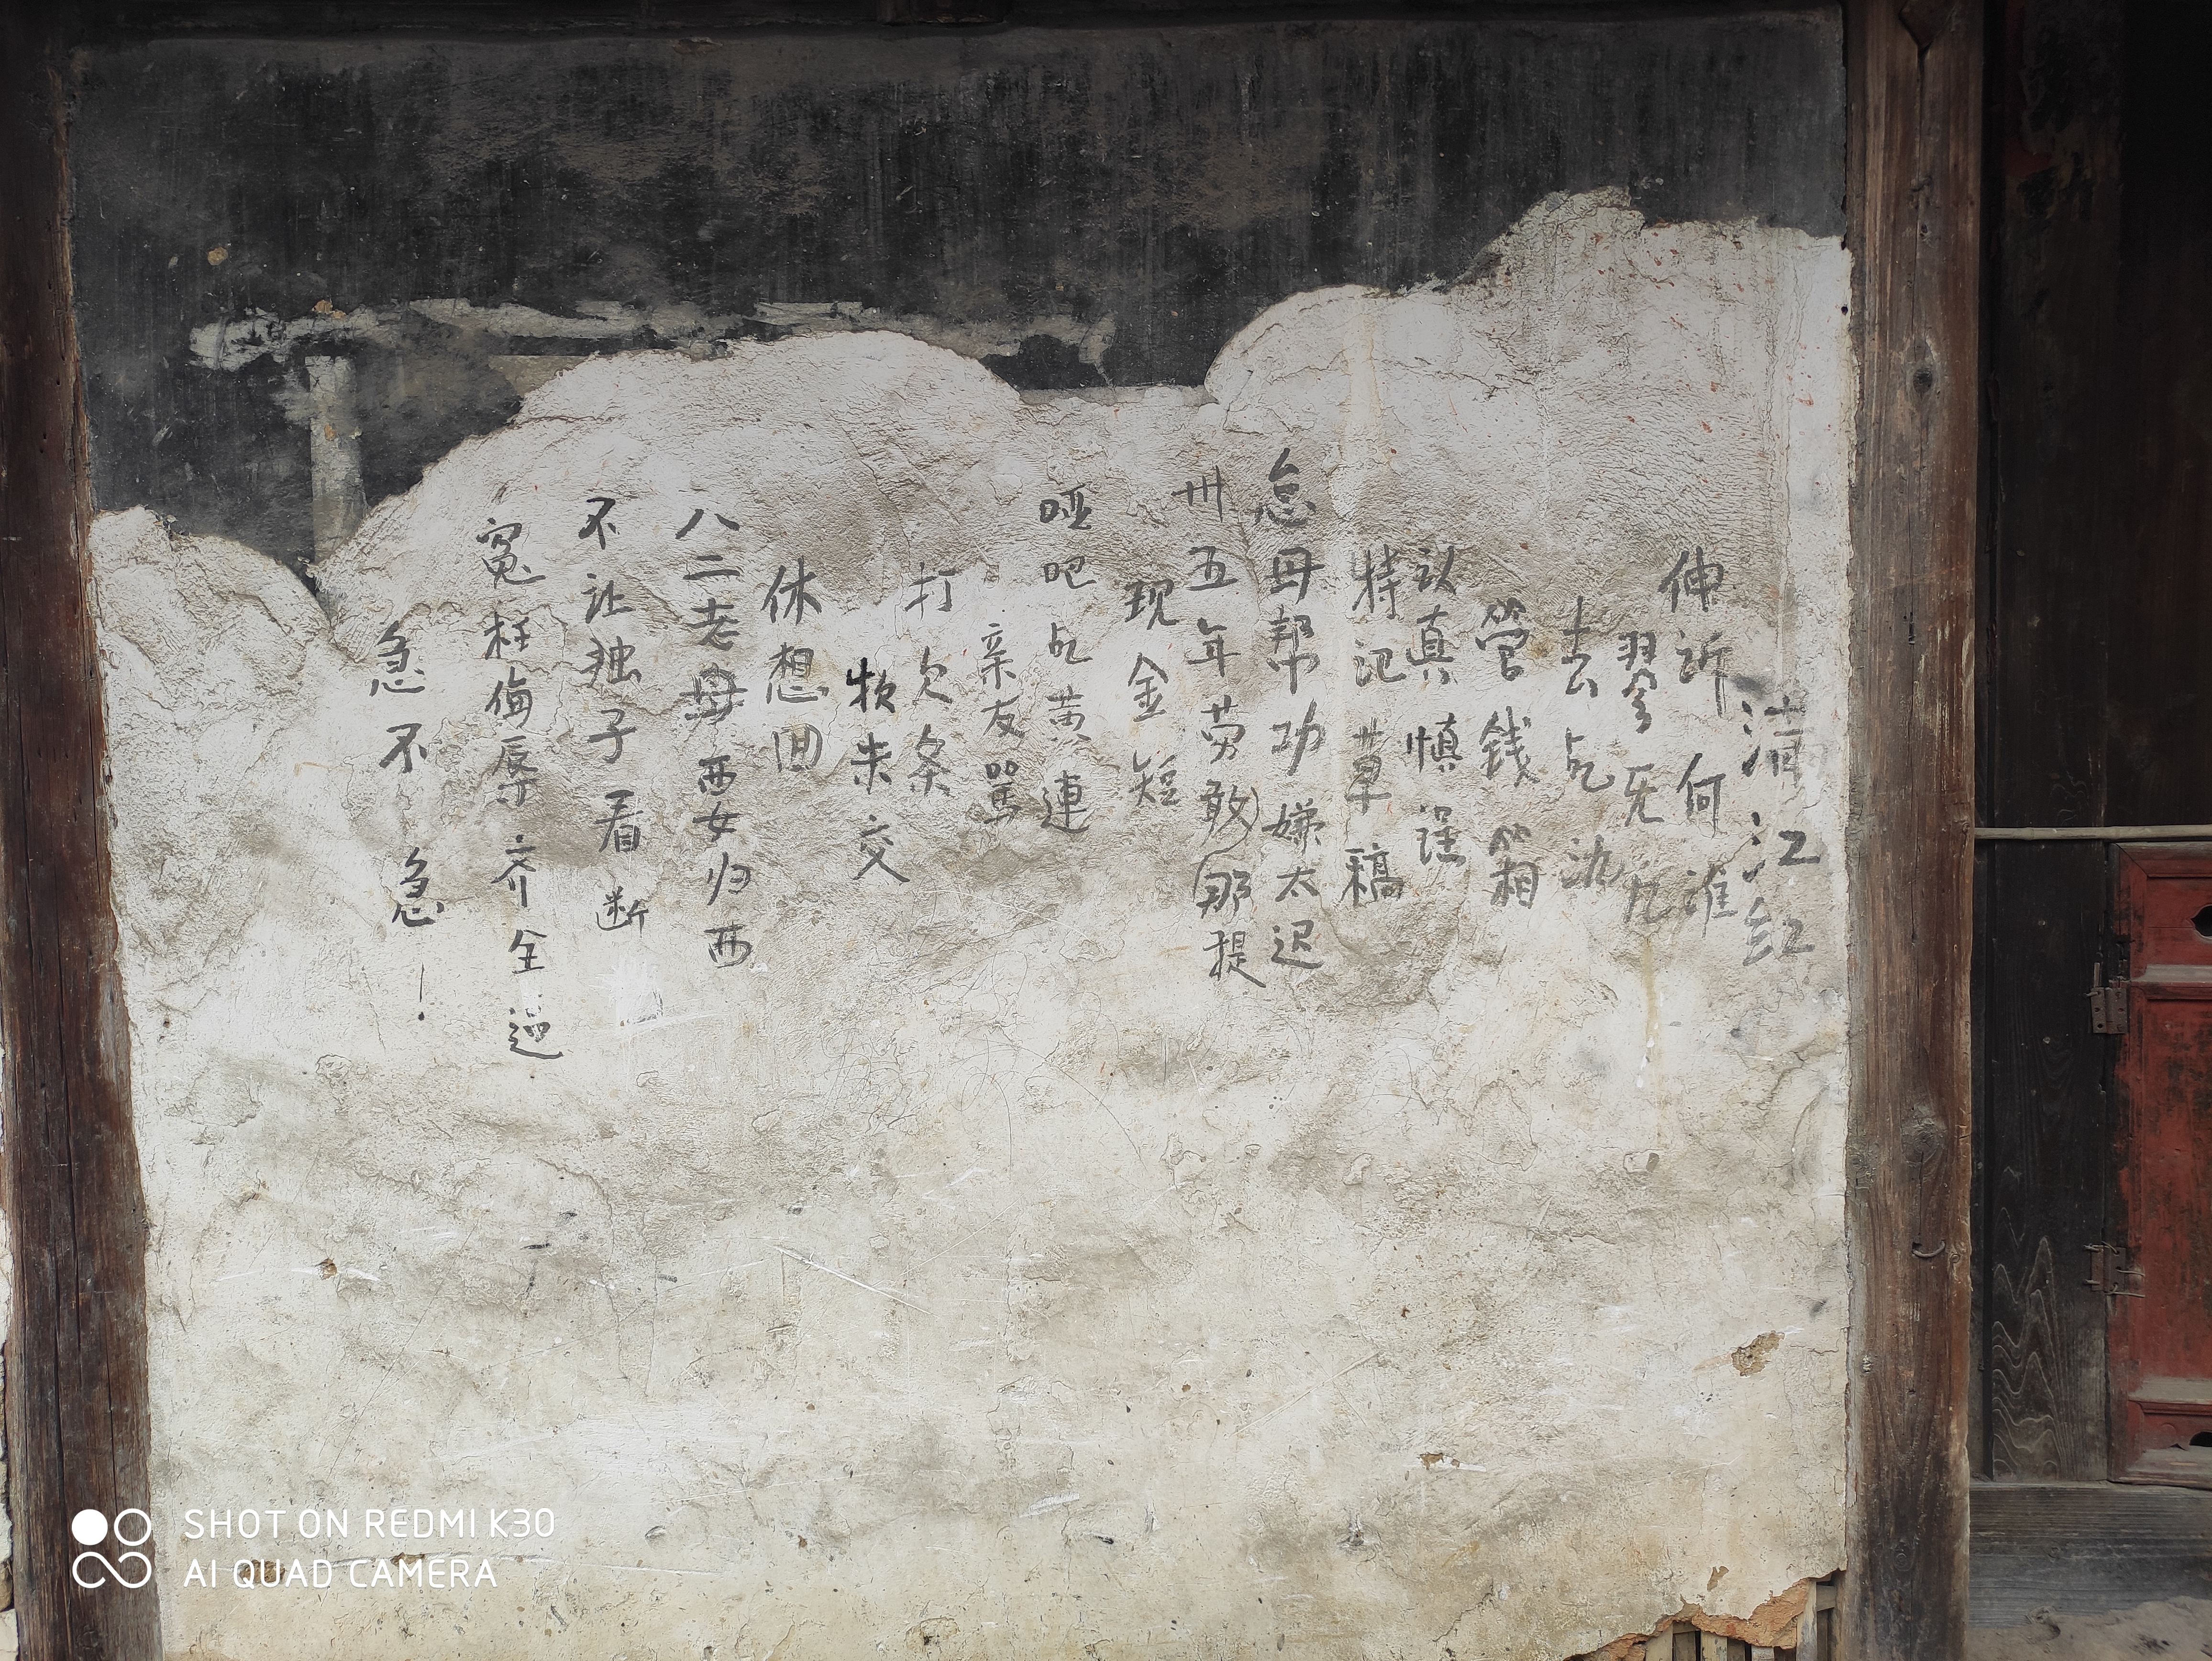 满江红
伸诉何准
翏旡九
去乩沈
管錢箱
认真慎误
特记草稿
怠母帮功嫌太迟
卅五年劳敢那提
现金短
哑吧乩黄連
亲友骂
打欠条
牧未交
休想回
八二老母西女归西
不让独子看断
冤枉侮辱齐全
急不急!
SHOT ON REDMI K30
AI QUAD CAMERA